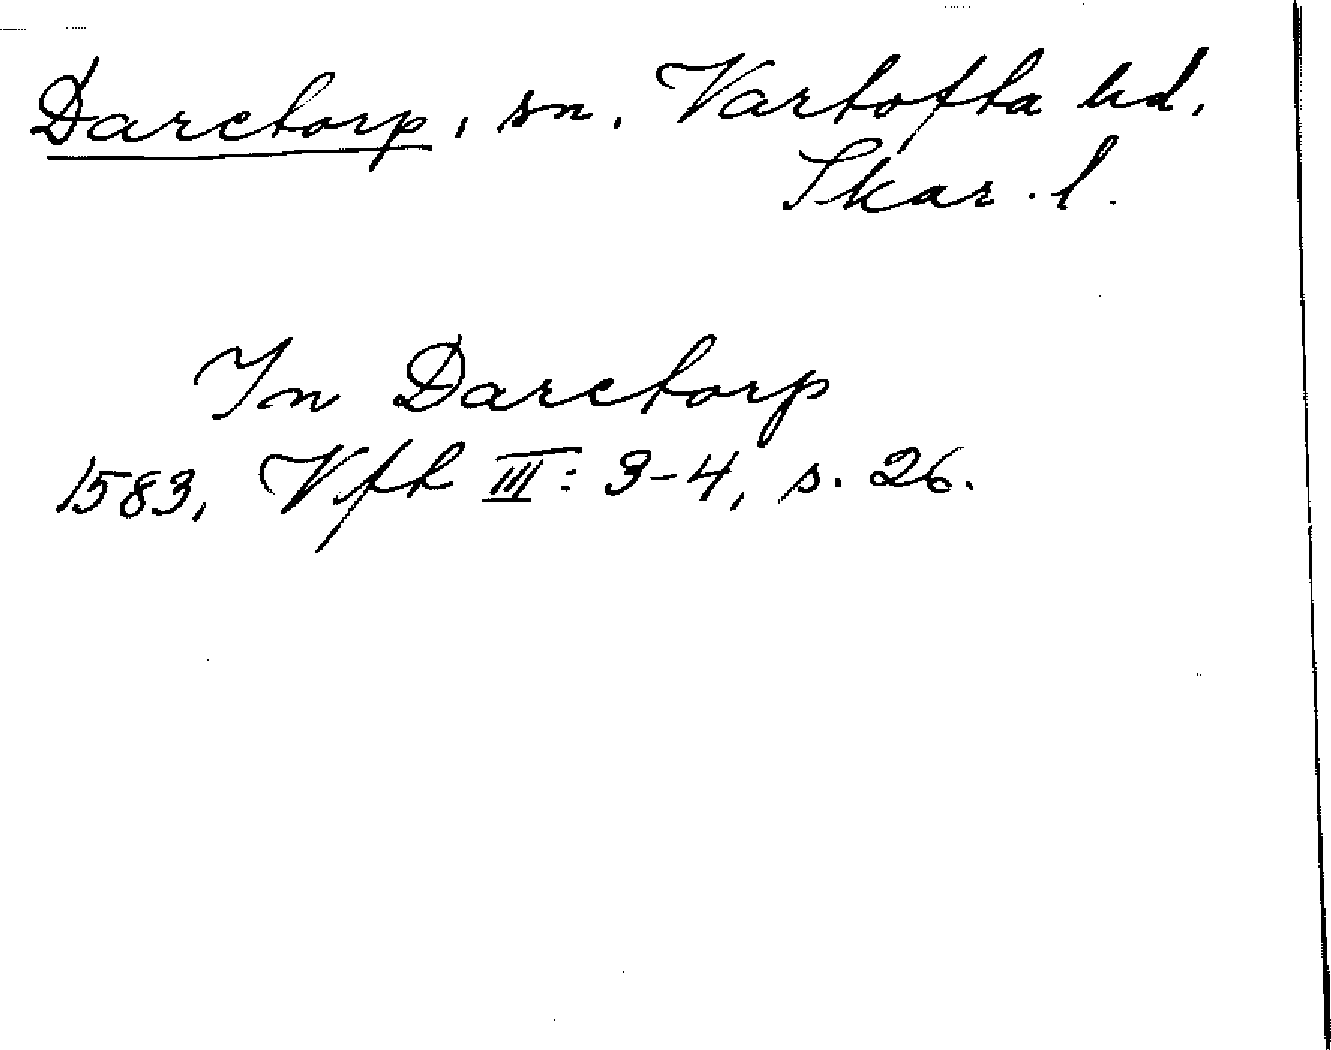 Daretorp, sn. Vartofta hd,
Skar. l.
In Daretorp
1583, Vfh III: 3-4, s. 26.